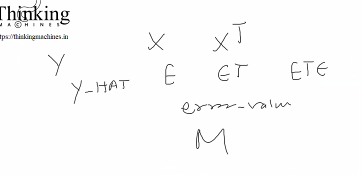 Thinking
MACHINES
ttps://thinkingmachines.in
X XT
Y
Y-HAT E ET ETE
error-value
M